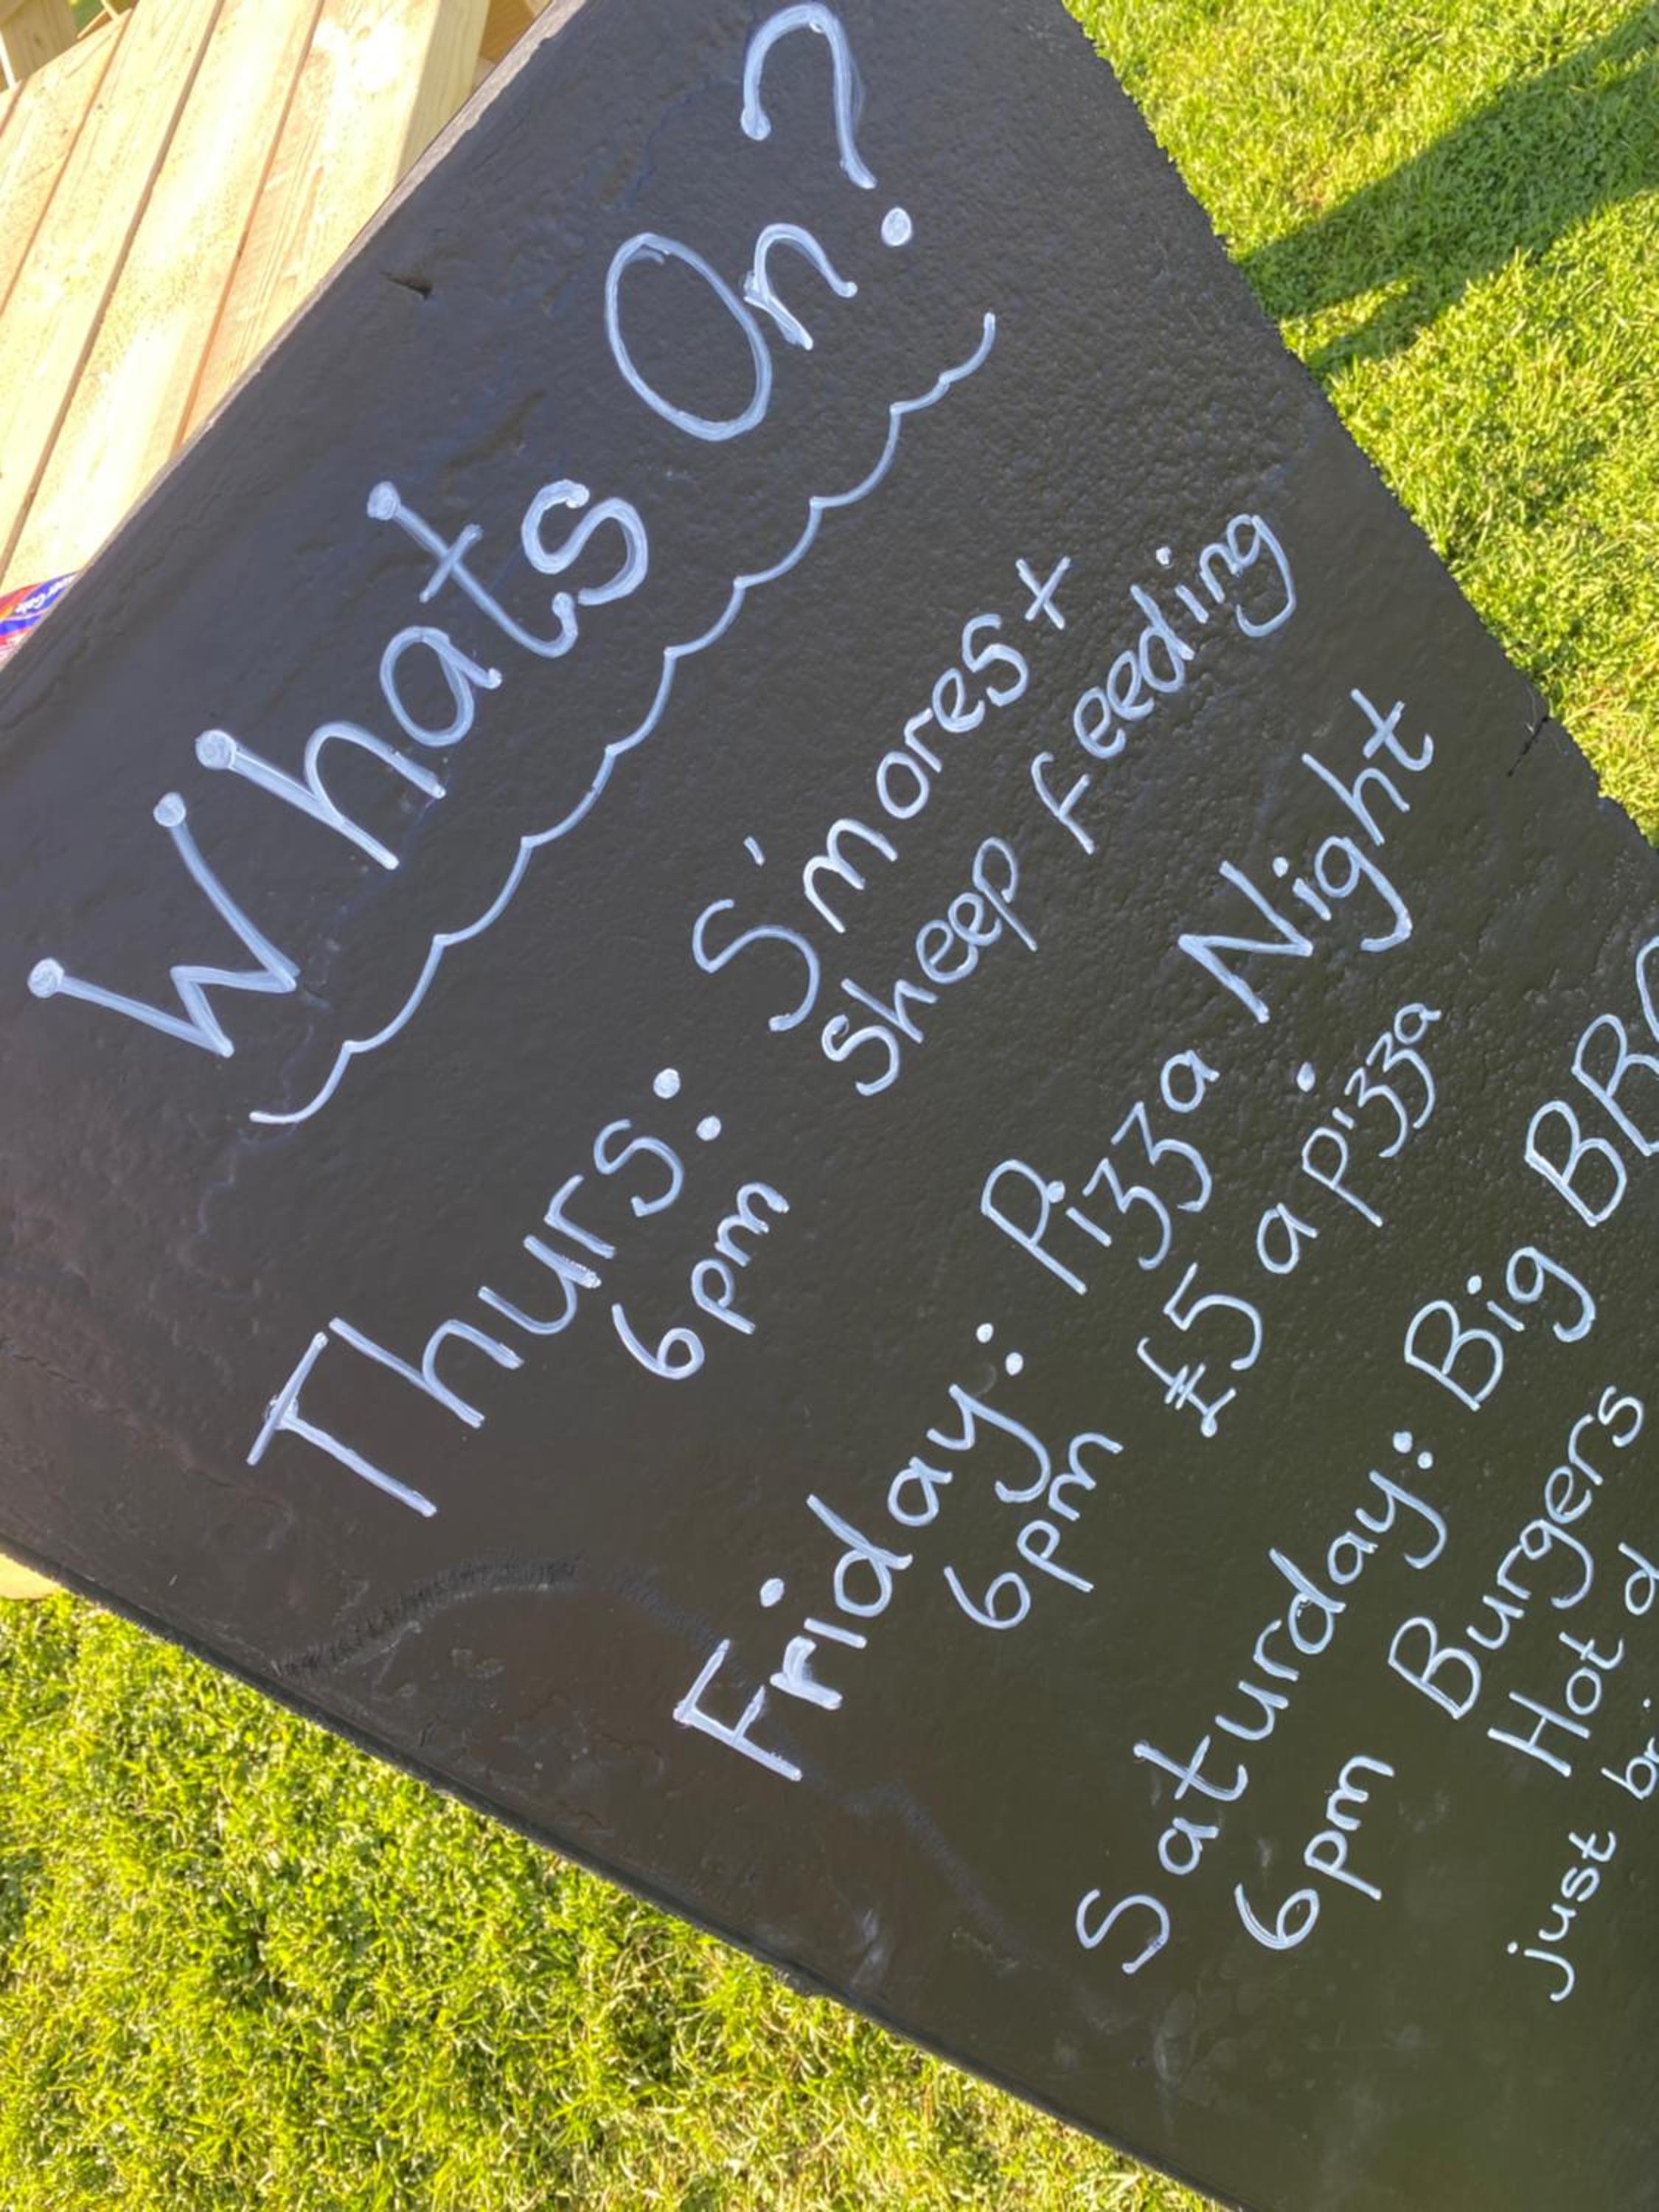 Whats On?
Thurs: S'mores +
6pm sheep feeding
Friday: Pizza Night
6pm £5 a pizza
Saturday: Big
6pm Burgers
Hot
just